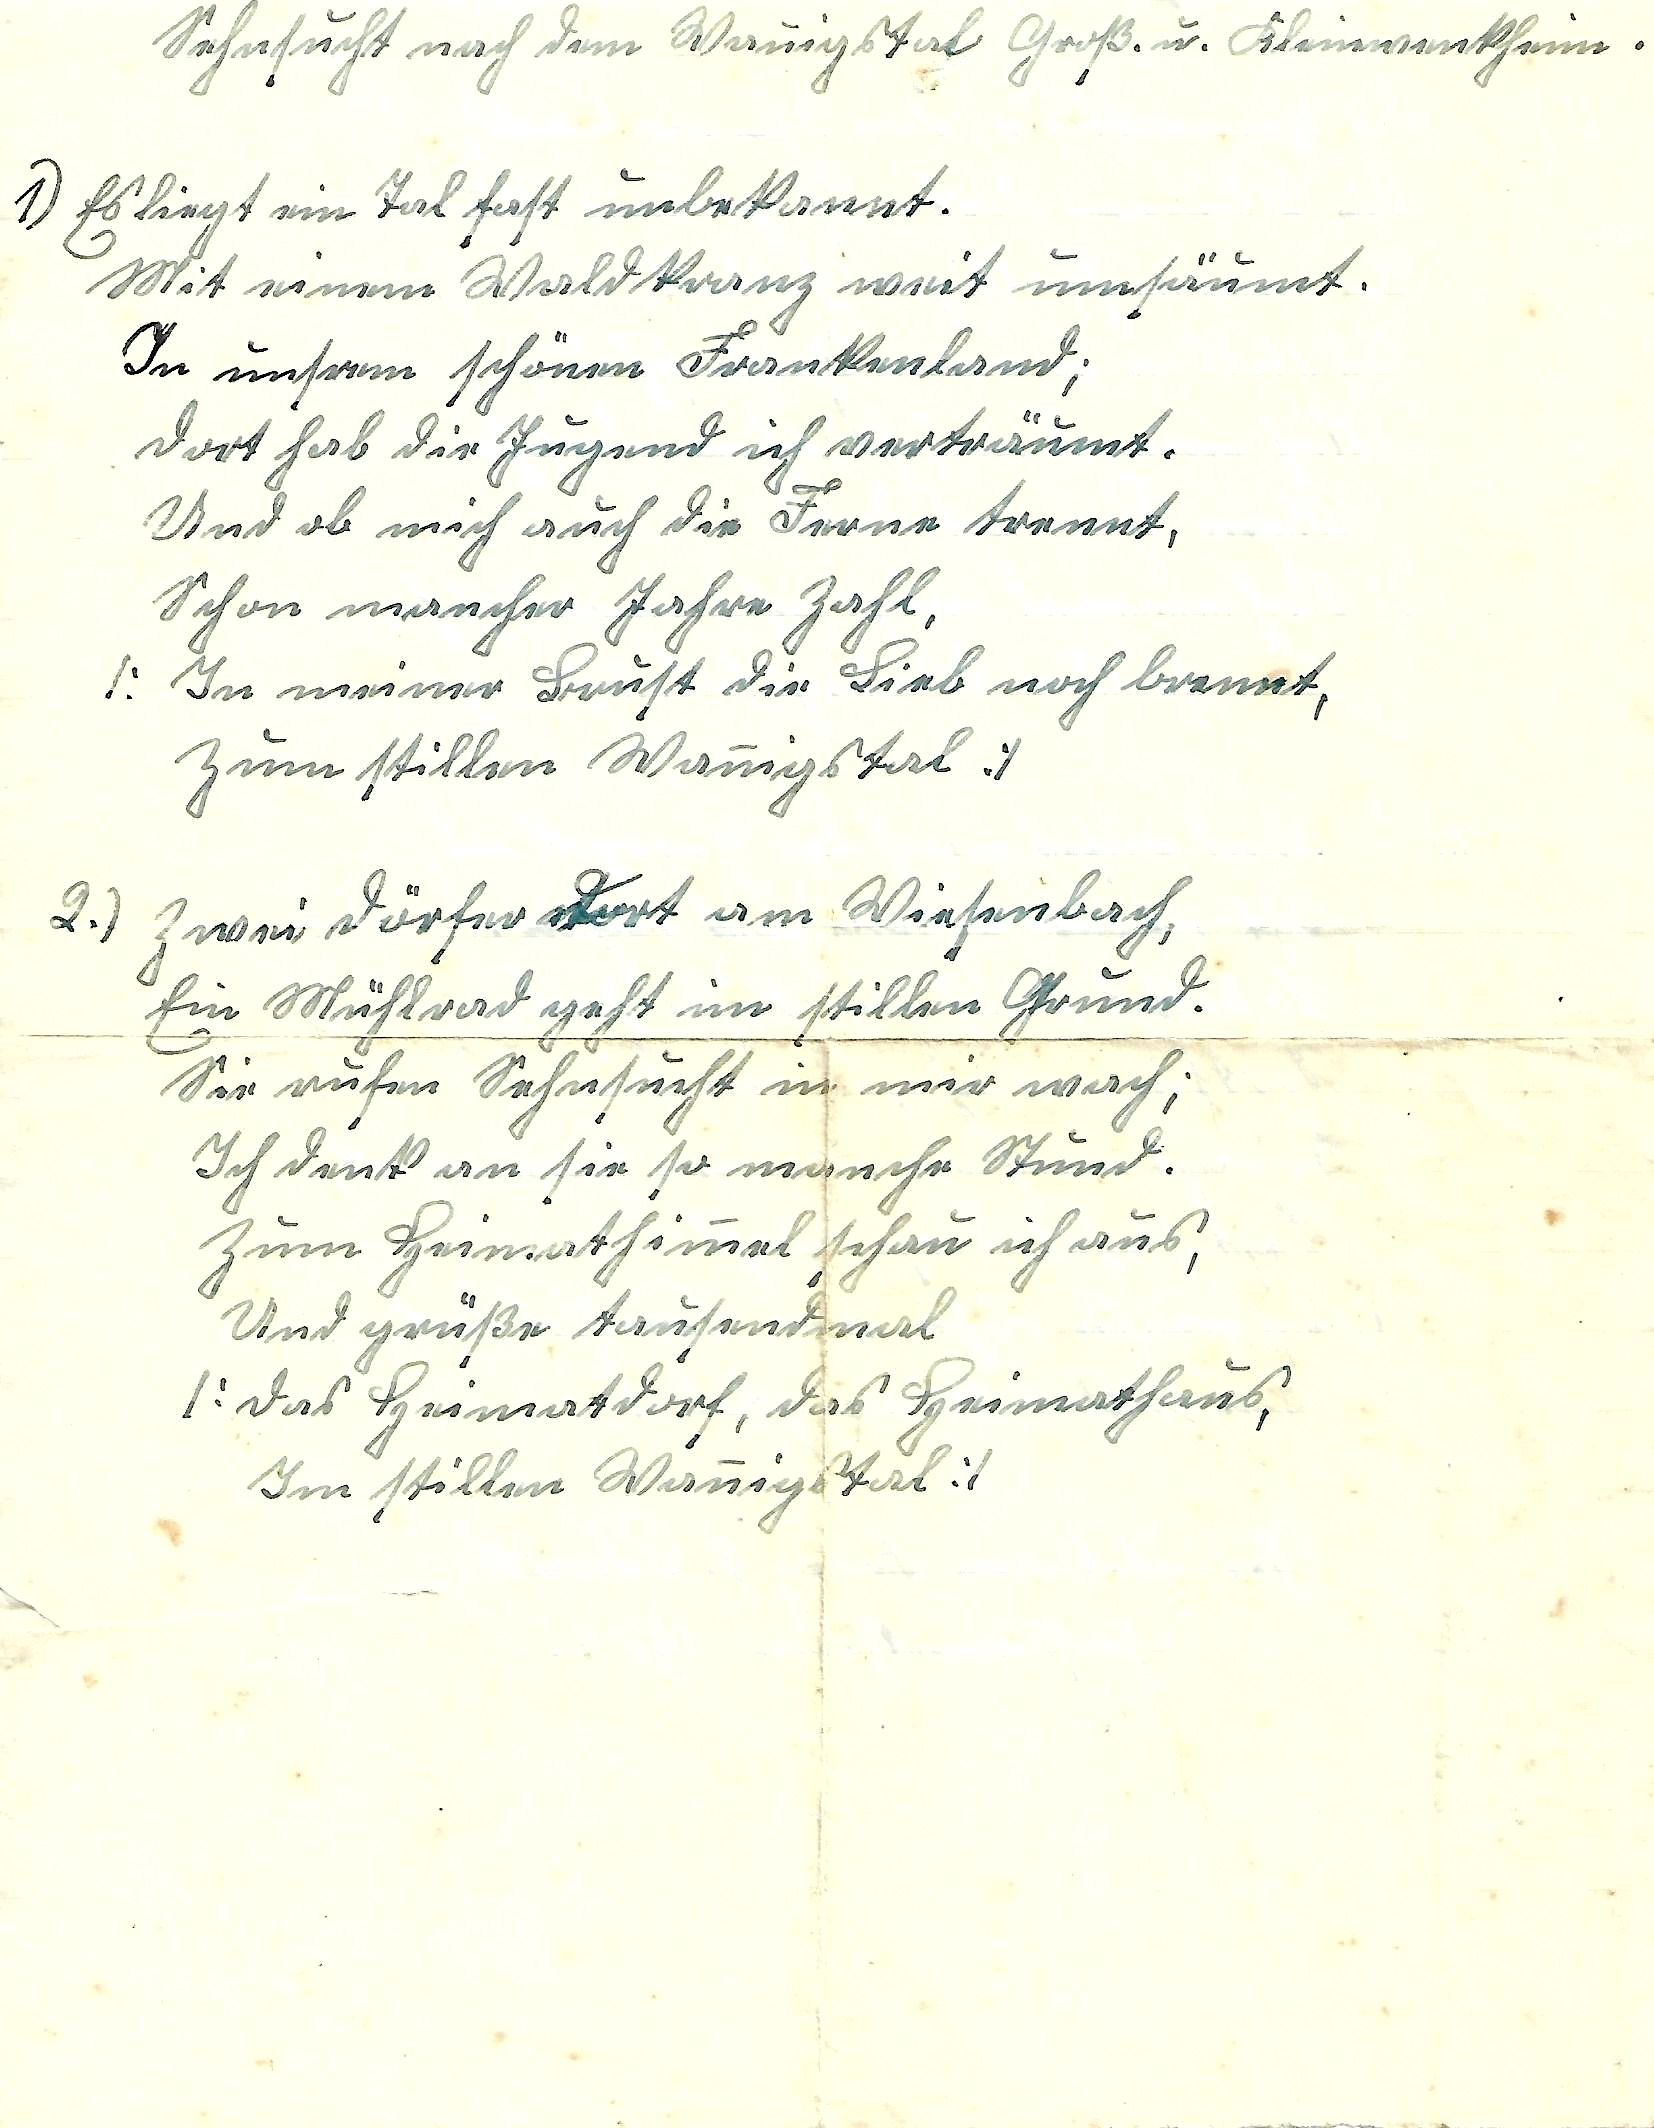 Sehnsucht nach dem Wannigstal Groß. u. Kleinwenkheim.
1) Es liegt ein Tal fast unbekannt.
Mit einem Waldkranz weit umsäumt.
In unsrem schönen Frankenland;
Dort hab die Jugend ich verträumt.
Und ob mich auch die Ferne trennt,
Schon mancher Jahre Zahl,
/: In meiner Brust die Lieb noch brennt,
Zum stillen Wan̄igstal :/
2.) Zwei Dörfer dort am Wiesenbach,
Ein Mühlrad geht im stillen Grund.
Sie rufen Sehnsucht in mir wach;
Ich denk an sie so manche Stund.
Zum Heimathim̄el schau ich aus,
Und grüße tausendmal
/: Das Heimatdorf, das Heimathaus,
Im stillen Wan̄igstal :/